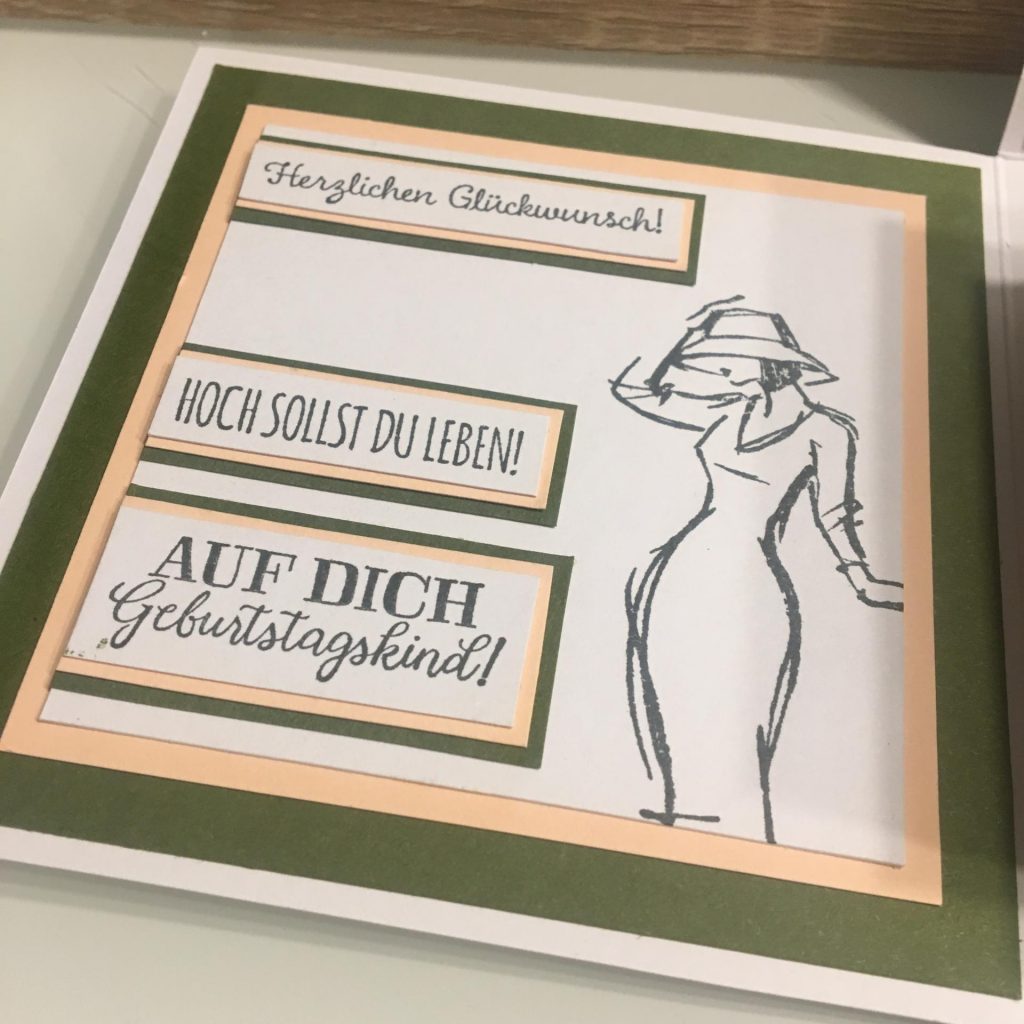 Herzlichen Glückwunsch!
HOCH SOLLST DU LEBEN!
AUF DICH
Geburtstagskind!